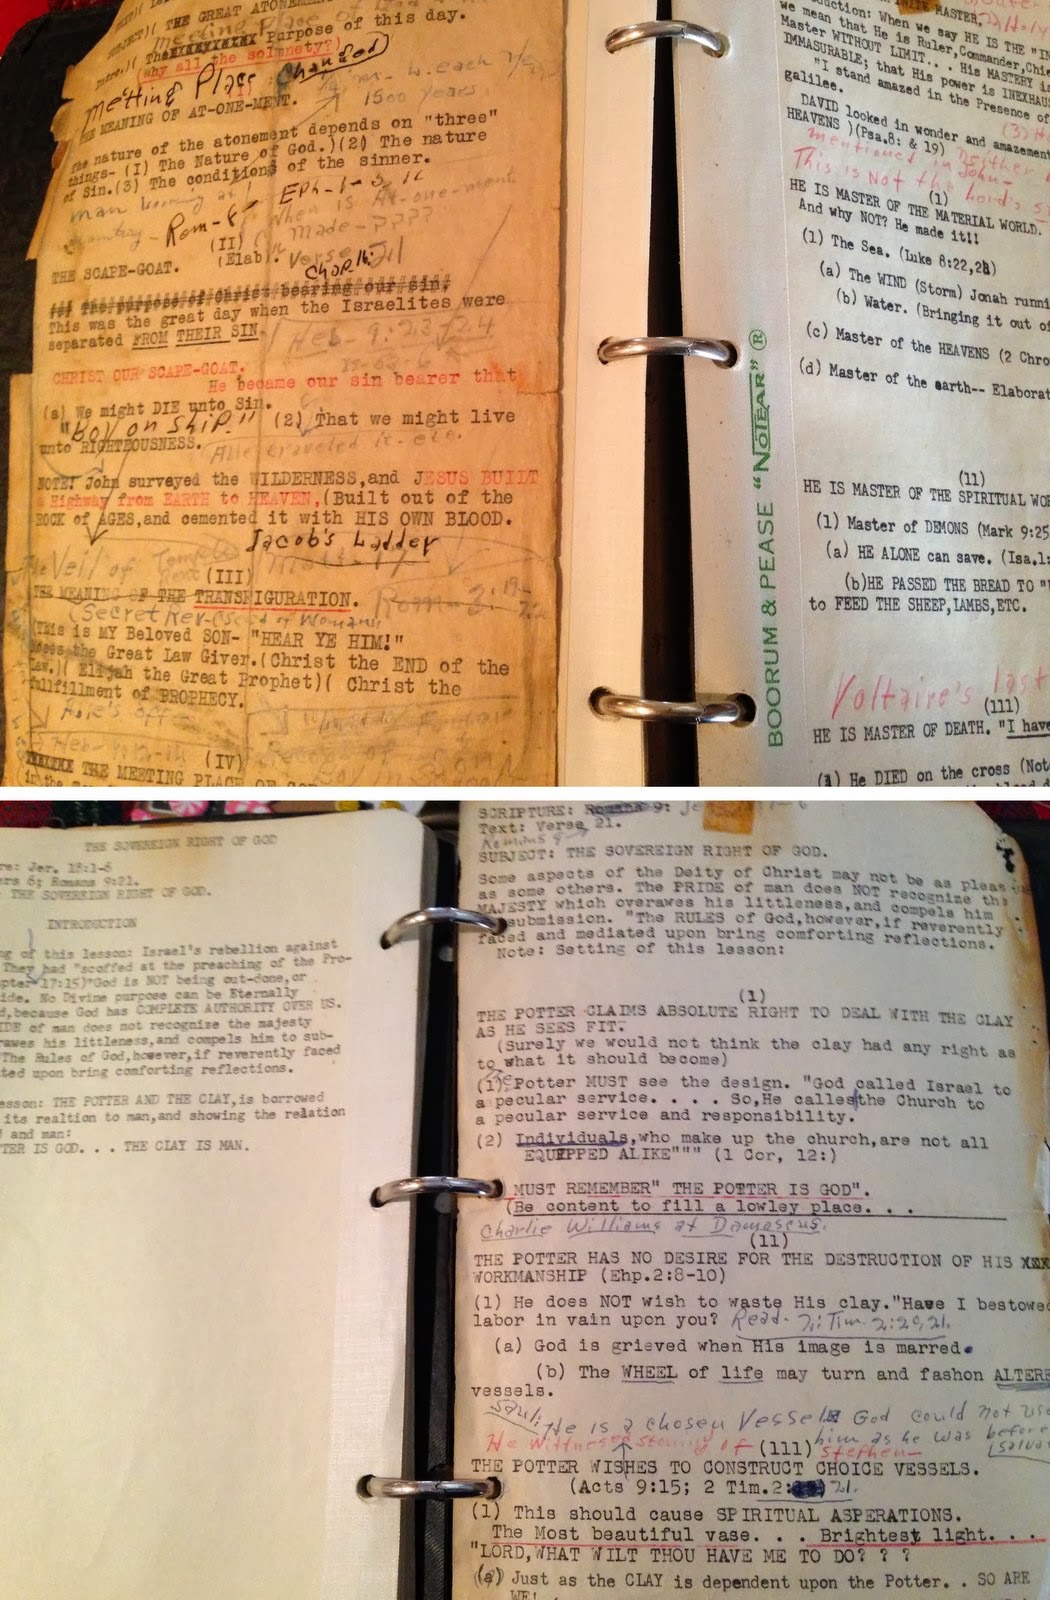 SUBJECT)( THE GREAT ATONEMENT
meeting place of God
Intro.)( The Purpose of this day.
(why all the solmnety?)
meeting Place Changed
THE MEANING OF AT-ONE-MENT.
1500 years.
The nature of the atonement depends on "three"
things- (I) The Nature of God.)(2) The nature
of Sin.(3) The conditions of the sinner.
Eph-1-
When is At-one-ment
Rom-8- made-????
(II)
(Elab). Verse
THE SCAPE-GOAT.
Chap 16:
The purpose of Christ bearing our sin,
This was the great day when the Israelites were
separated FROM THEIR SIN.
Heb-9:23-24
CHRIST OUR SCAPE-GOAT.
He became our sin bearer that
(a) We might DIE unto Sin.
"boy on ship" (2) That we might live
unto RIGHTEOUSNESS.
NOTE: John surveyed the WILDERNESS,and JESUS BUILT
a Highway from EARTH to HEAVEN,(Built out of the
ROCK of AGES,and cemented it with HIS OWN BLOOD.
Jacob's Ladder
The Veil of Temple
Rent (III)
THE MEANING OF THE TRANSFIGURATION.
Rom-3:19-
(This is MY Beloved SON- "HEAR YE HIM!"
Moses the Great Law Giver.(Christ the END of the
Law.)( Elijah the Great Prophet)( Christ the
fullfillment of PROPHECY.
(IV)
THE MEETING PLACE OF
in the
BOORUM & PEASE "NOTEAR" ®
MASTER,
duction: When we say HE IS THE "IN
we mean that He is Ruler,Commander,Chie
Master WITHOUT LIMIT... His MASTERY is
IMMASURABLE; that His power is INEXHAUS
"I stand amazed in the Presence of
galilee.
DAVID looked in wonder and amazement
HEAVENS )(Psa.8: & 19)
mentioned in Esther
John-
This is Not the Lord's
(1)
HE IS MASTER OF THE MATERIAL WORLD.
And why NOT? He made it!!
(1) The Sea. (Luke 8:22,24)
(a) The WIND (Storm) Jonah runni
(b) Water. (Bringing it out of
(c) Master of the HEAVENS (2 Chro
(d) Master of the earth-- Elaborat
(11)
HE IS MASTER OF THE SPIRITUAL WOR
(1) Master of DEMONS (Mark 9:25
(a) HE ALONE can save. (Isa.1:
(b)HE PASSED THE BREAD TO
to FEED THE SHEEP,LAMBS,ETC.
Voltaire's last
(111)
HE IS MASTER OF DEATH. "I have
(1) He DIED on the cross (Not
THE SOVEREIGN RIGHT OF GOD
re: Jer. 18:1-6
ers 6; Romans 9:21.
: THE SOVEREIGN RIGHT OF GOD.
INTRODUCTION
ng of this lesson: Israel's rebellion against
They had "scoffed at the preaching of the Pro-
pter 17:15)"God is NOT being out-done,or
ide. No Divine purpose can be Eternally
d,because God has COMPLETE AUTHORITY OVER US.
IDE of man does not recognize the majesty
rawes his littleness,and compels him to sub-
"The Rules of God,however,if reverently faced
ted upon bring comforting reflections.
esson: THE POTTER AND THE CLAY,is borrowed
its realtion to man,and showing the relation
d and man:
TER IS GOD. . . THE CLAY IS MAN.
SCRIPTURE: Romans 9:
Text: Verse 21.
Romans 9
SUBJECT: THE SOVEREIGN RIGHT OF GOD.
Some aspects of the Deity of Christ may not be as pleas
as some others. The PRIDE of man does NOT recognize the
MAJESTY which overawes his littleness,and compels him
submission. "The RULES of God,however,if reverently
faced and mediated upon bring comforting reflections.
Note: Setting of this lesson:
(1)
THE POTTER CLAIMS ABSOLUTE RIGHT TO DEAL WITH THE CLAY
AS HE SEES FIT.
(Surely we would not think the clay had any right as
to what it should become)
(1) The Potter MUST see the design. "God called Israel to
a pecular service. . . . So,He calles the Church to
a pecular service and responsibility.
(2) Individuals,who make up the church,are not all
EQUIPPED ALIKE""" (1 Cor, 12:)
MUST REMEMBER" THE POTTER IS GOD".
(Be content to fill a lowley place. . .
Charlie Williams at Damascus.
(11)
THE POTTER HAS NO DESIRE FOR THE DESTRUCTION OF HIS XXX
WORKMANSHIP (Ehp.2:8-10)
(1) He does NOT wish to waste His clay."Have I bestowed
labor in vain upon you? Read- 2: Tim. 2:20,21.
(a) God is grieved when His image is marred.
(b) The WHEEL of life may turn and fashon ALTERE
vessels.
Saul: He is a chosen Vessel God could not use
him as he was before
He wittnessed stoning of Stephen- (salvat
(111)
THE POTTER WISHES TO CONSTRUCT CHOICE VESSELS.
(Acts 9:15; 2 Tim.2: 21.
(1) This should cause SPIRITUAL ASPERATIONS.
The Most beautiful vase. . . Brightest light. . .
"LORD,WHAT WILT THOU HAVE ME TO DO? ? ?
(a) Just as the CLAY is dependent upon the Potter. . SO ARE
WE!